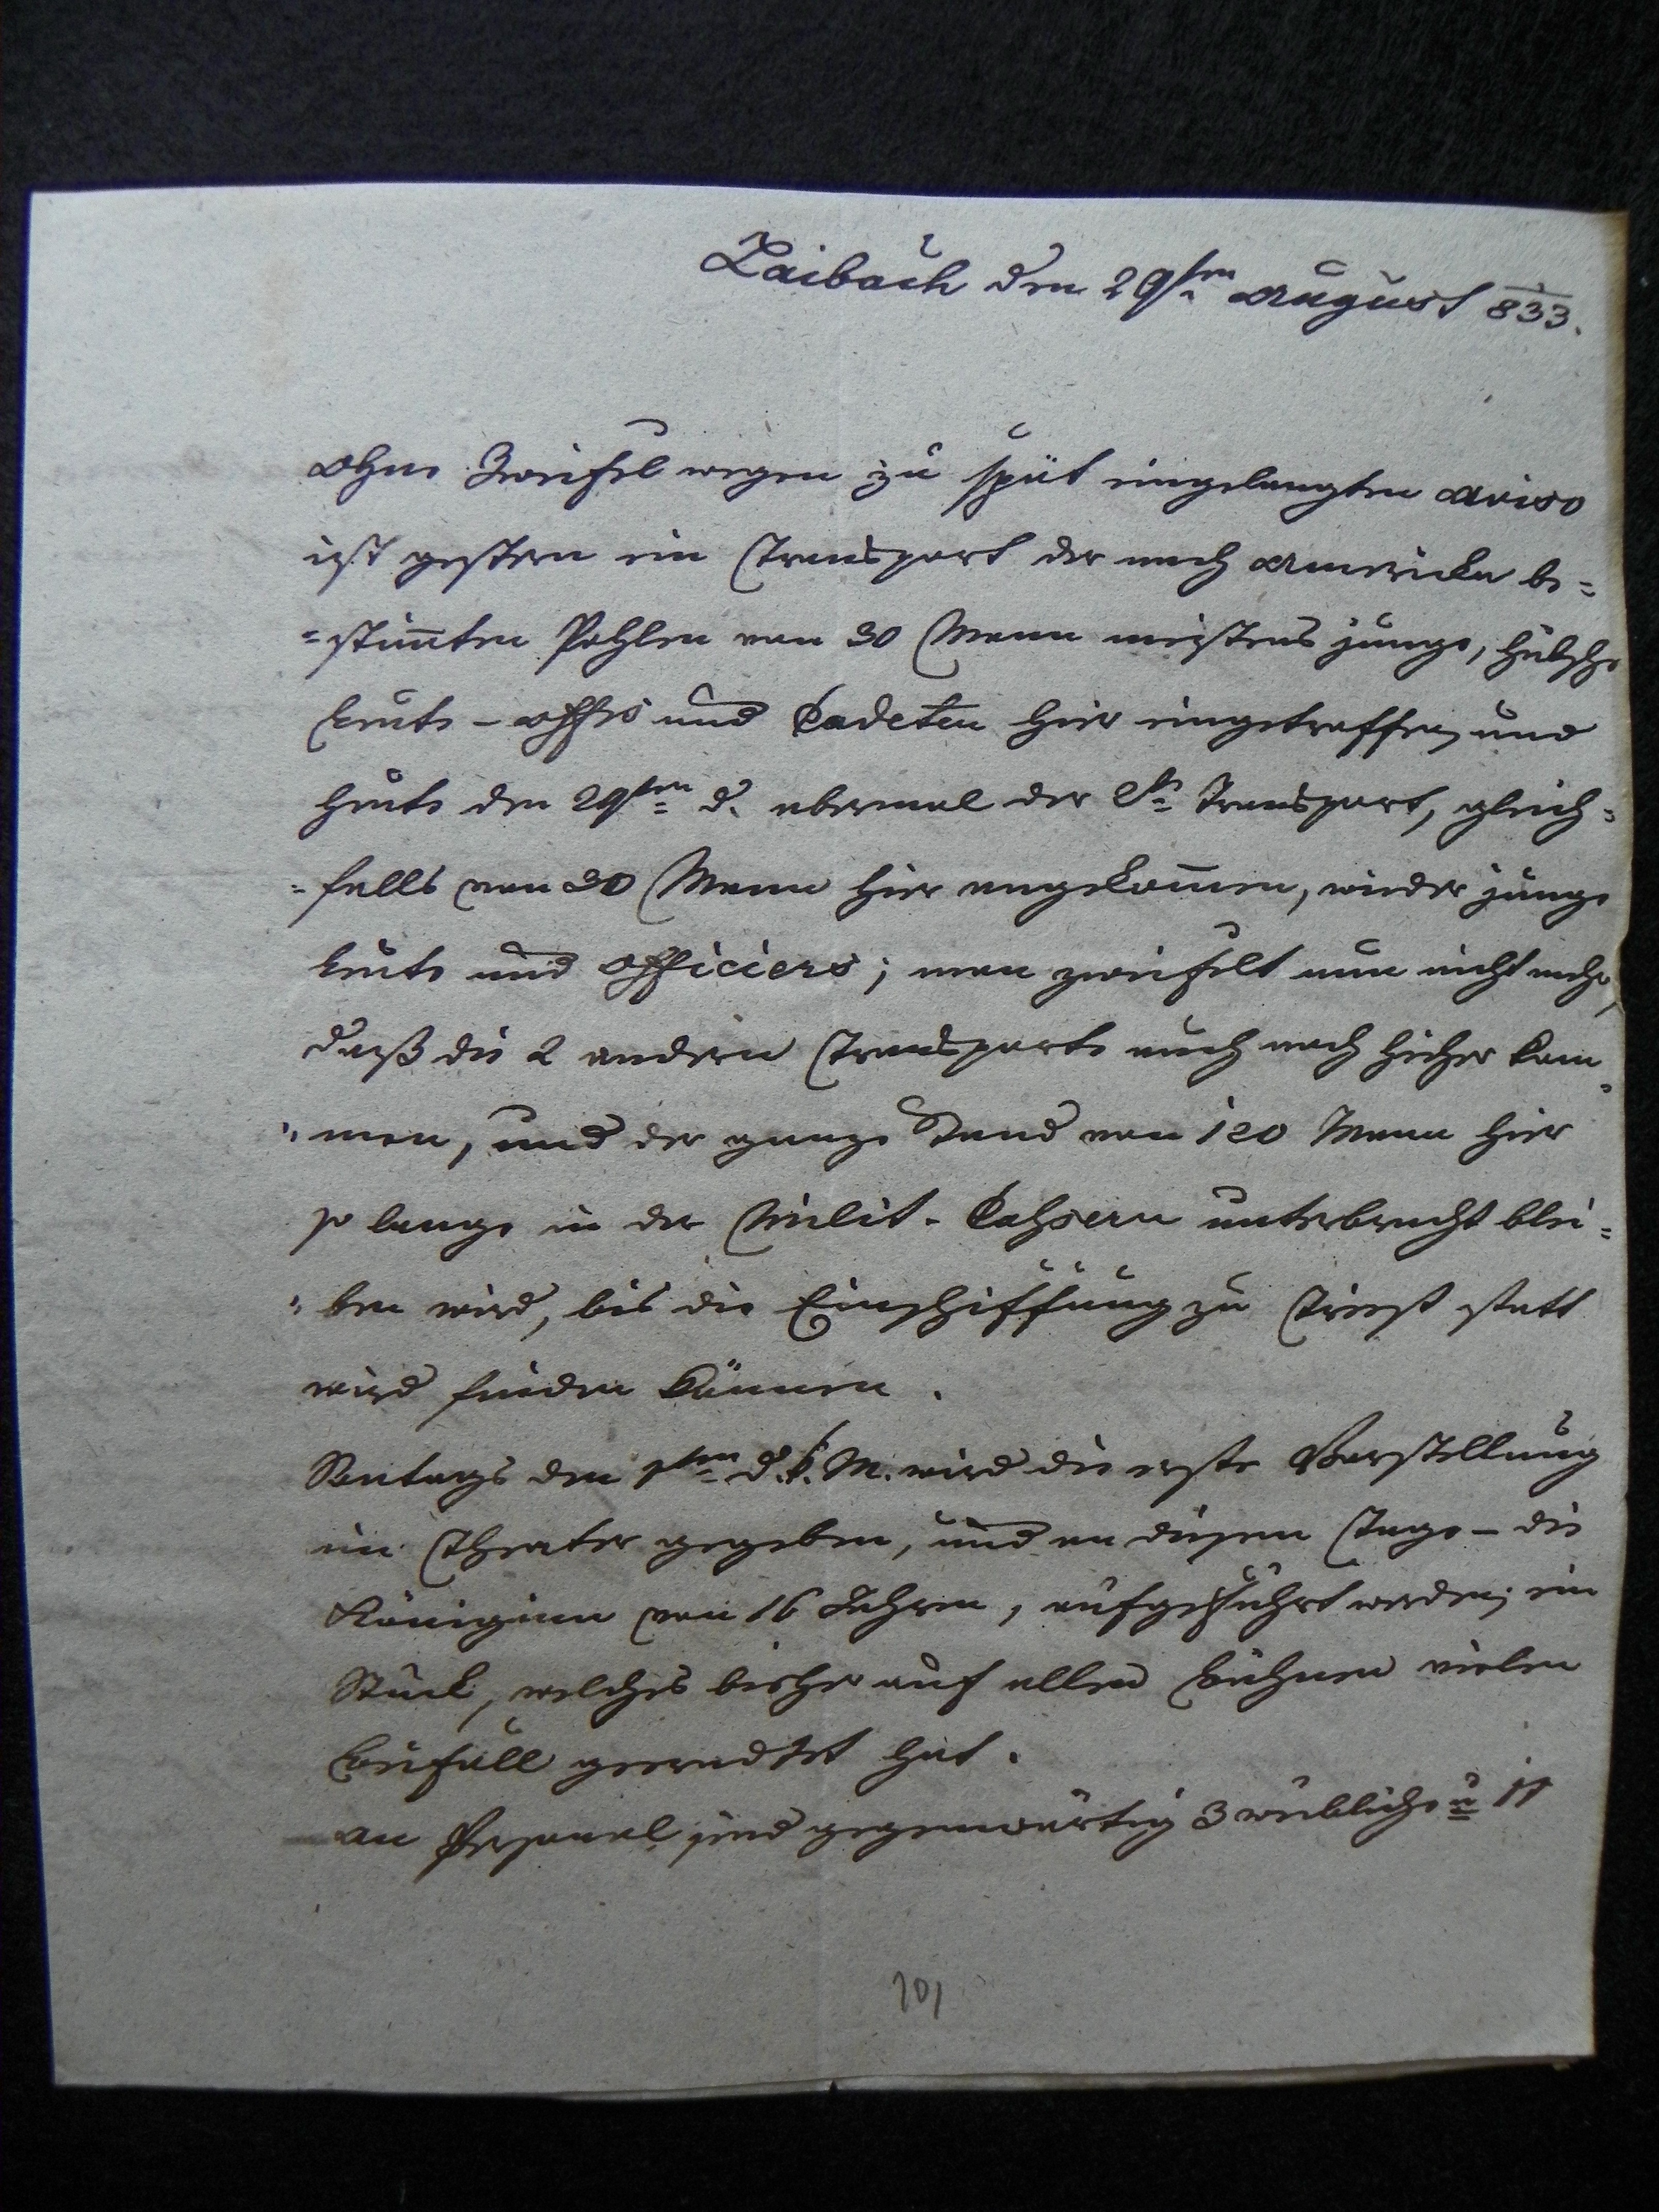 Laibach den 29ten August 833.
Ohne Zweifel wegen zu spät eingelangten Aviso
ist gestern ein Transport der nach America be=
=stim̅ten Pohlen von 30 Mann meistens junge, hübsche
Leute – Offrs und Cadeten hier eingetroffen, und
heute den 29ten d. abermal der 2te Transport, gleich=
=falls von 30 Mann hier angekom̅en, wieder junge
Leute und Officiers; man zweifelt nun nicht mehr,
daß die 2 andern Transporte auch noch hieher kom=
=men, und der ganze Stand von 120 Mann hier
so lange in der Milit. Cahsern unterbracht blei=
=ben wird, bis die Einschiffung zu Triest statt
wird finden können.
Sontags den 1ten d. k. M. wird die erste Vorstellung
im Theater gegeben, und an diesem Tage – die
Königinn von 16 Jahren, aufgeführt werden; ein
Stück, welches bisher auf allen Bühnen vielen
Beifall geerndtet hat.
An Personal sind gegenwärtig 3 weibliche u 11
101